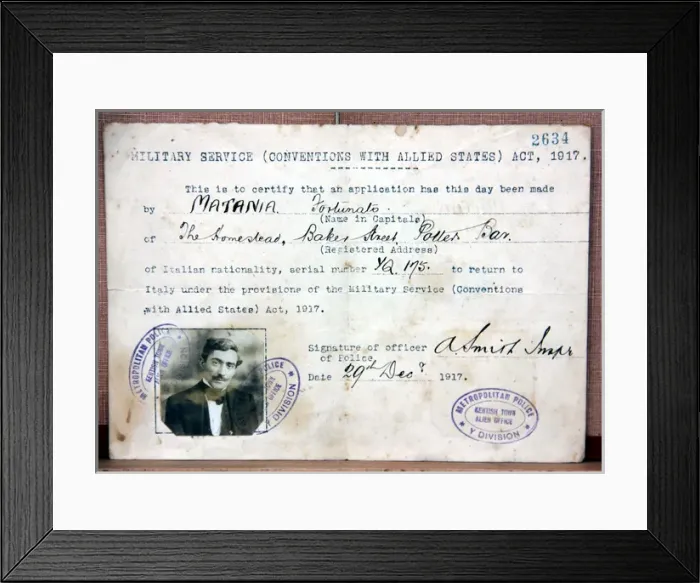 2634
MILITARY SERVICE (CONVENTIONS WITH ALLIED STATES) ACT, 1917.
This is to certify that an application has this day been made
by MATANIA Fortunato.
(Name in Capitals)
of The Homestead, Baker Street, Potters Bar.
(Registered Address)
of Italian nationality, serial number YQ. 175. to return to
Italy under the provisions of the Military Service (Conventions
with Allied States) Act, 1917.
Signature of officer A Smith Inspr
of Police,
Date 29th Decr 1917.
METROPOLITAN POLICE
KENTISH TOWN
ALIEN OFFICE
POLICE
Y DIVISION
METROPOLITAN POLICE
KENTISH TOWN
ALIEN OFFICE
* Y DIVISION *